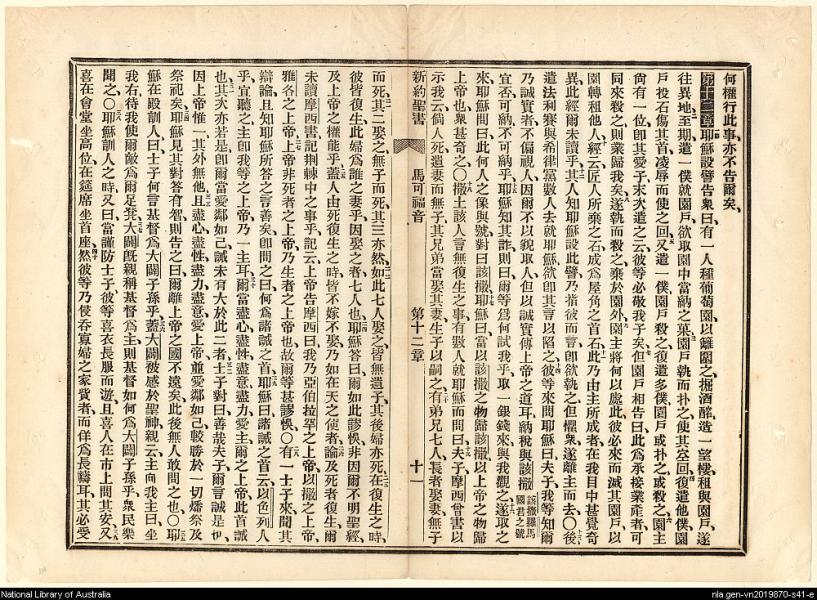 何權行此事亦不告爾矣
第十二章耶穌設譬告衆曰有一人種葡萄園以籬圍之掘酒醡造一望樓租與園戶遂
往異地至期遣一僕就園戶欲取園中當納之菓園戶執而朴之使其空回復遣他僕園
戶投石傷其首凌辱而使之回又遣一僕園戶殺之復遣多僕園戶或朴之或殺之園主
尙有一位卽其愛子末次遣之云彼等必敬我子矣但園戶相告曰此爲承接業產者可
同來殺之則業歸我矣遂執而殺之棄於園外園主將何以處此彼必來而滅其園戶以
園轉租他人經云匠人所棄之石成爲屋角之首石此乃由主所成者在我目中甚覺奇
異此經爾未讀乎其人知耶穌設此譬乃指彼而言卽欲執之但懼衆遂離主而去〇後
遣法利賽與希律黨數人去就耶穌欲卽其言以陷之彼等來問耶穌曰夫子我等知爾
乃誠實者不偏視人因爾不以貌取人但以誠實傳上帝之道耳納稅與該撒該撒羅馬國君之號
宜否可納不可納乎耶穌知其詐則曰爾等爲何試我乎取一銀錢來與我觀之遂取之
來耶穌問曰此何人之像與號對曰該撒耶穌曰當以該撒之物歸該撒以上帝之物歸
上帝也衆甚奇之〇撒土該人言無復生之事有數人就耶穌而問曰夫子摩西曾書以
示我云倘人死遺妻而無子其兄弟當娶其妻生子以嗣之有弟兄七人長者娶妻無子
新約聖書 馬可福音 第十二章 十一
而死其二娶之無子而死其三亦然如此七人娶之皆無遺子其後婦亦死在復生之時
彼皆復生此婦爲誰之妻乎因娶之者七人也耶穌答曰爾如此謬悞非因爾不明聖經
及上帝之權能乎蓋人由死復生之時皆不嫁不娶乃如在天之使者論及死者復生爾
未讀摩西書記荆棘中之事乎記云上帝告摩西曰我乃亞伯拉罕之上帝以撒之上帝
雅各之上帝上帝非死者之上帝乃生者之上帝也故爾等甚謬悞〇有一士子來聞其
辯論且知耶穌所答之言善矣卽問之曰何爲諸誡之首耶穌曰諸誡之首云以色列人
乎宜聽之主卽我等之上帝乃一主耳爾當盡心盡性盡意盡力愛主爾之上帝此首誡
也其次亦若是卽爾當愛鄰如己誡未有大於此二者士子對曰善哉夫子爾言誠是也
因上帝惟一其外無他且盡心盡性盡力盡意愛上帝並愛鄰如己較勝於一切燔祭及
祭祀矣耶穌見其對答有智則告之曰爾離上帝之國不遠矣此後無人敢問之也〇耶
穌在殿訓人曰士子何言基督爲大闢子孫乎蓋大闢被感於聖神親云主向我主曰坐
我右待我使爾敵爲爾足凳大闢旣親稱基督爲主則基督如何爲大闢子孫乎衆民樂
聞之〇耶穌訓人之時又曰當謹防士子彼等喜衣長服而遊且喜人在市上問其安又
喜在會堂坐高位在筵席坐首座然彼等乃侵吞寡婦之家貲者而佯爲長禱耳其必受
National Library of Australia
nla.gen-vn2019870-s41-e